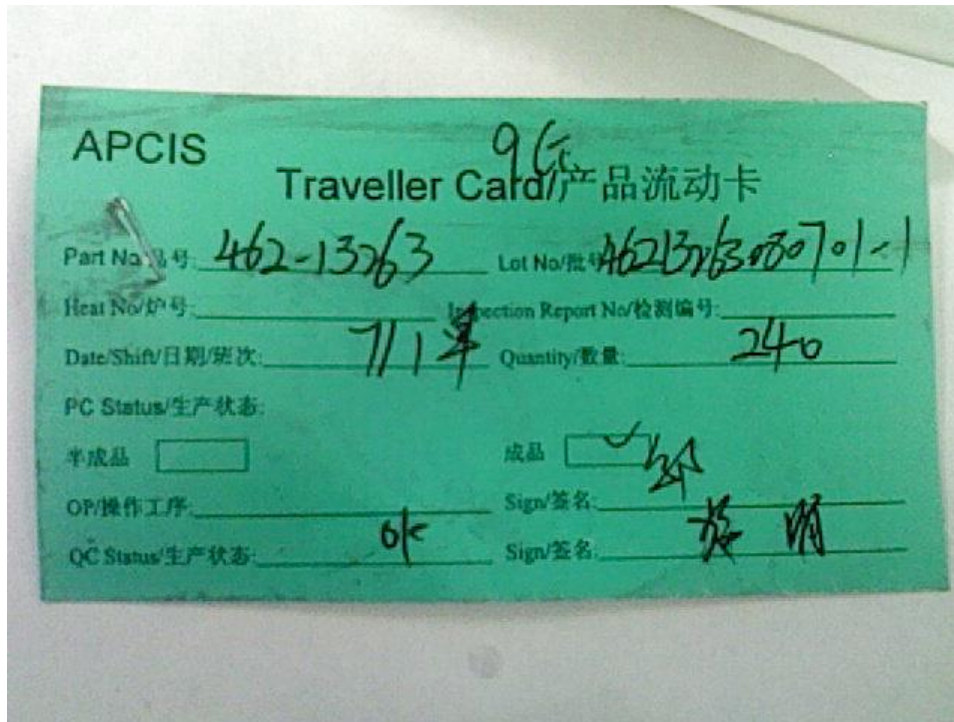 APCIS
Traveller Card/产品流动卡
Part No/品号: 462-13263 Lot No/批号: 46213263080701-1
Heat No/炉号: Inspection Report No/检测编号:
Date/Shift/日期/班次: 7/1 Quantity/数量: 240
PC Status/生产状态:
半成品 成品 ✓
OP/操作工序: Sign/签名:
QC Status/生产状态: ok Sign/签名: